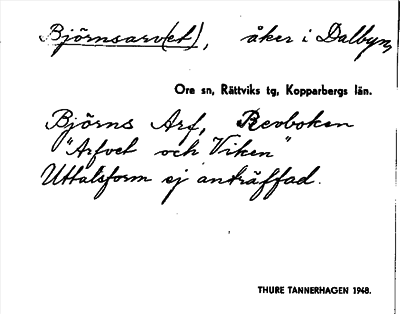 Björnsarv(et), åker i Dalbyn,
Ore sn, Rättviks tg, Kopparbergs län.
Björns Arf, Revboken
"Arfvet och Viken"
Uttalsform ej anträffad.
THURE TANNERHAGEN 1948.